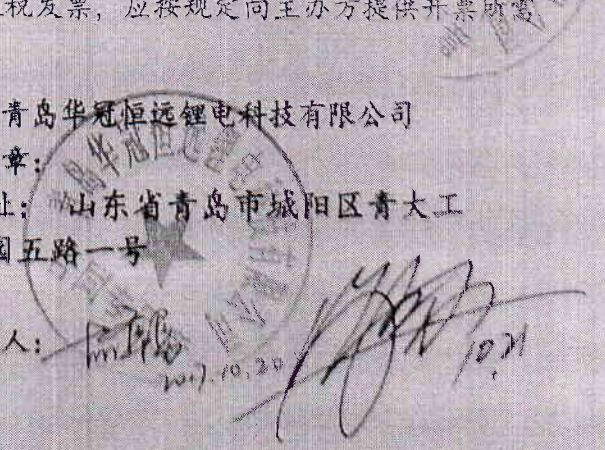 税发票，应按规定向主办方提供开票所需
青岛华冠恒远锂电科技有限公司
章：
址： 山东省青岛市城阳区青大工
园五路一号
人：
2017.10.20
10.21
青岛华冠恒远锂电科技有限公司